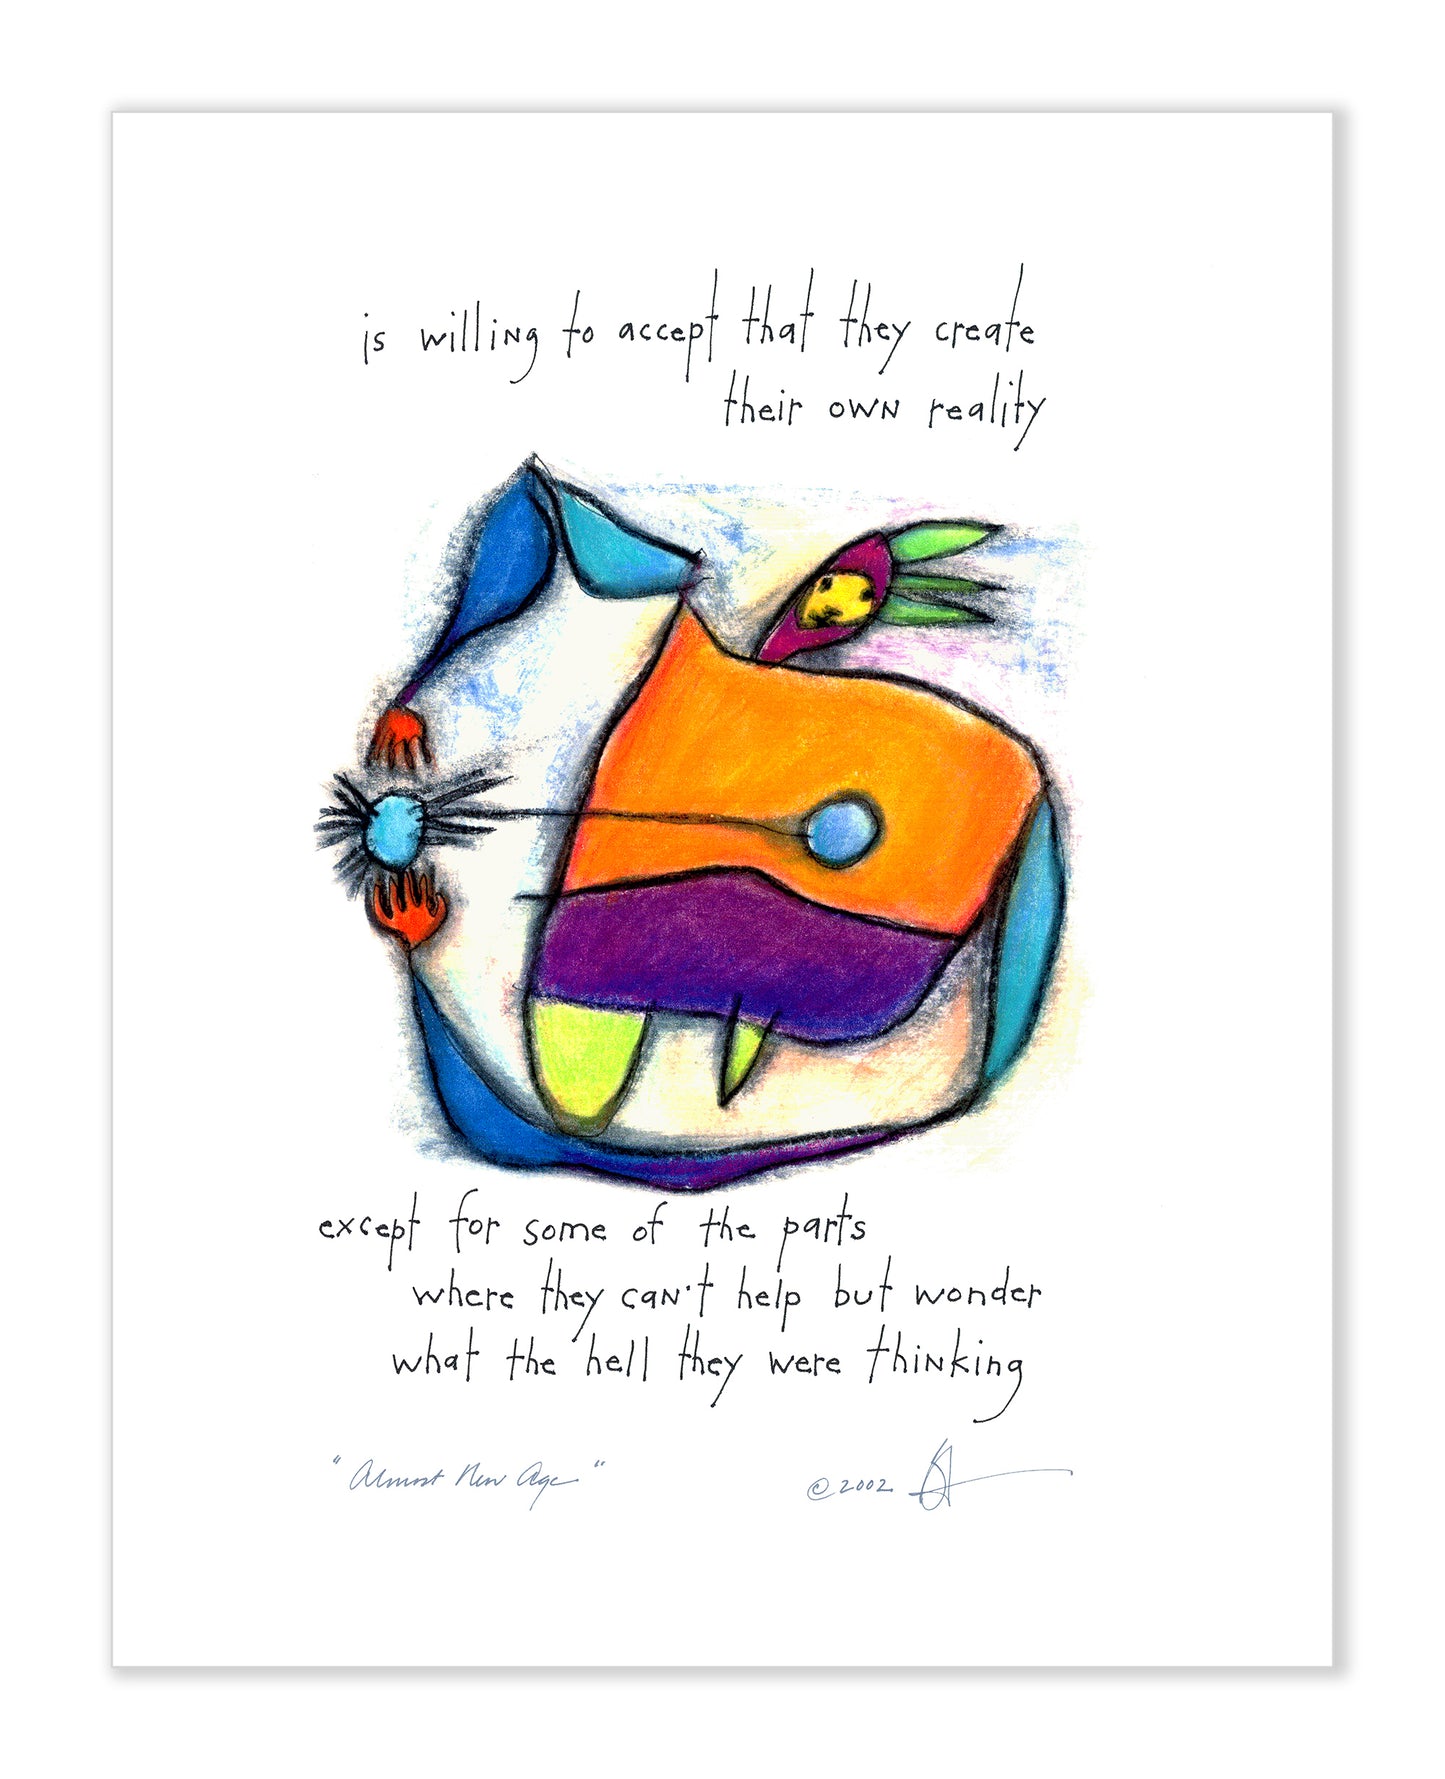 is willing to accept that they create
their own reality
except for some of the parts
where they can't help but wonder
what the hell they were thinking
"Almost New Age" ©2002